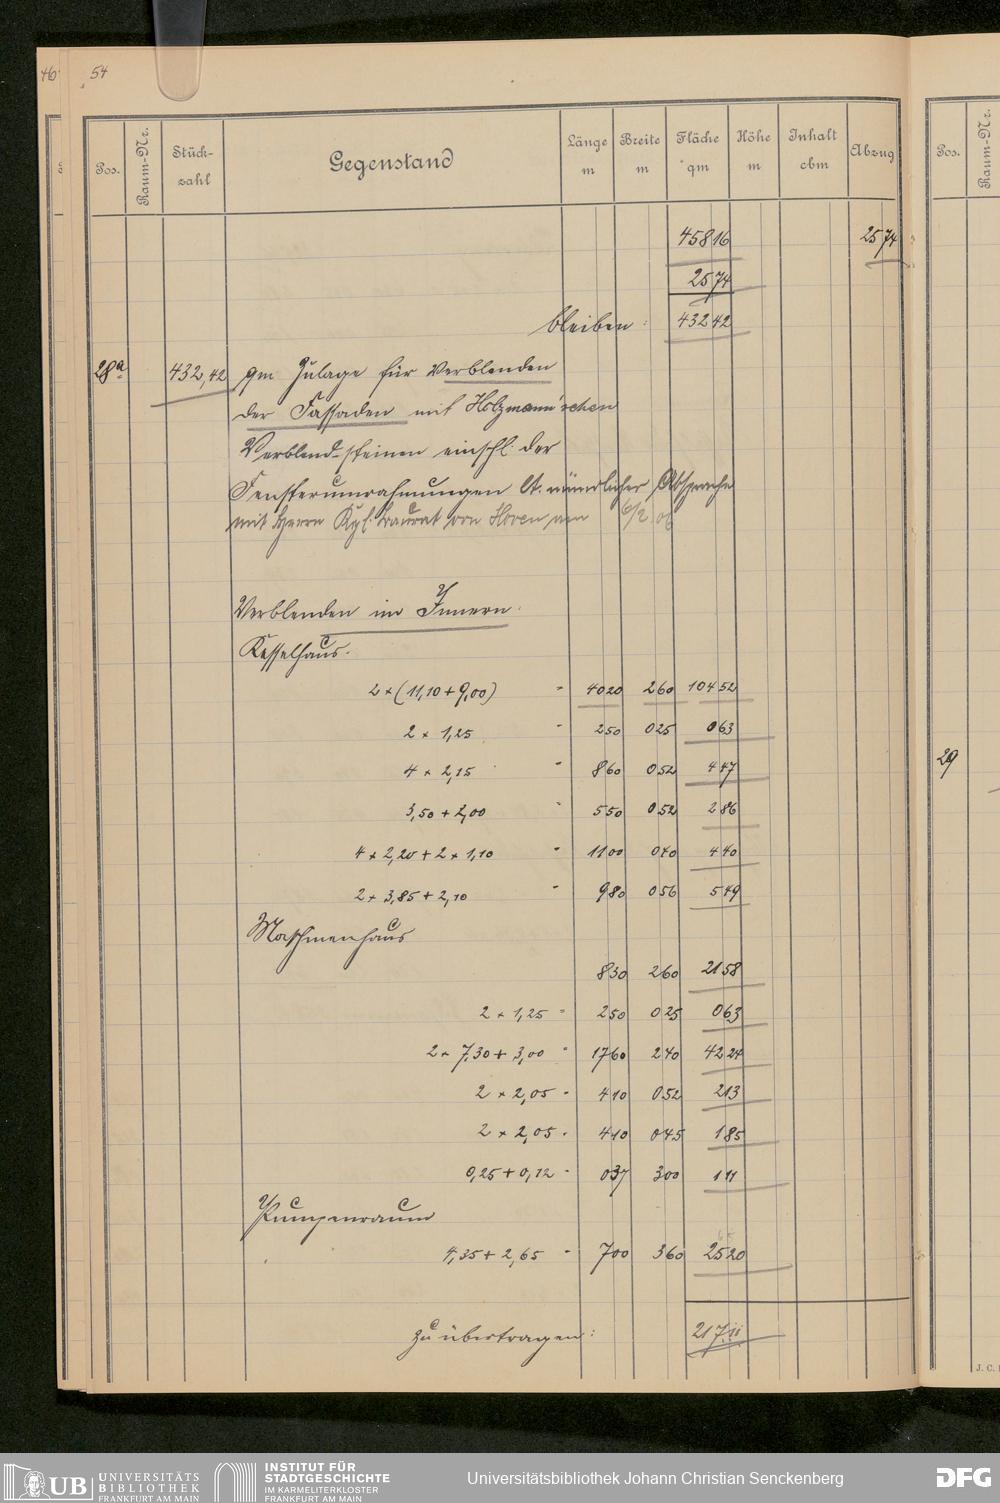 46
54
Pos.
Raum-Nr.
Stück-
zahl
Gegenstand
Länge
m
Breite
m
Fläche
qm
Höhe
m
Inhalt
cbm
Abzug
Pos.
Raum-Nr.
458 16 25 74
25 74
bleiben : 432 42
28a 432,42 qm Zulage für Verblenden
der Fassaden mit Holzmann'schen
Verblend-steinen einschl. der
Fensterumrahmungen lt. mündlicher Absprache
mit Herrn Kgl. Baurat von Hoven am 6/2 06
Verblenden im Innern.
Kesselhaus.
2 × (11,10 + 9,00) = 40 20 2 60 104 52
2 × 1,25 " 2 50 0 25 0 63
4 × 2,15 " 8 60 0 52 4 47
3,50 + 2,00 " 5 50 0 52 2 86
4 × 2,20 + 2 × 1,10 " 11 00 0 40 4 40
2 × 3,85 + 2,10 " 9 80 0 56 5 49
Maschinenhaus
8 30 2 60 21 58
2 × 1,25 = 2 50 0 25 0 63
2 × 7,30 + 3,00 = 17 60 2 40 42 24
2 × 2,05 = 4 10 0 52 2 13
2 × 2,05 = 4 10 0 45 1 85
0,25 + 0,12 = 0 37 3 00 1 11
Pumpenraum
4,35 + 2,65 = 7 00 3 60 25 20
zu übertragen : 217 11
29
J. C.
UB
UNIVERSITÄTS
BIBLIOTHEK
FRANKFURT AM MAIN
INSTITUT FÜR
STADTGESCHICHTE
IM KARMELITERKLOSTER
FRANKFURT AM MAIN
Universitätsbibliothek Johann Christian Senckenberg
DFG